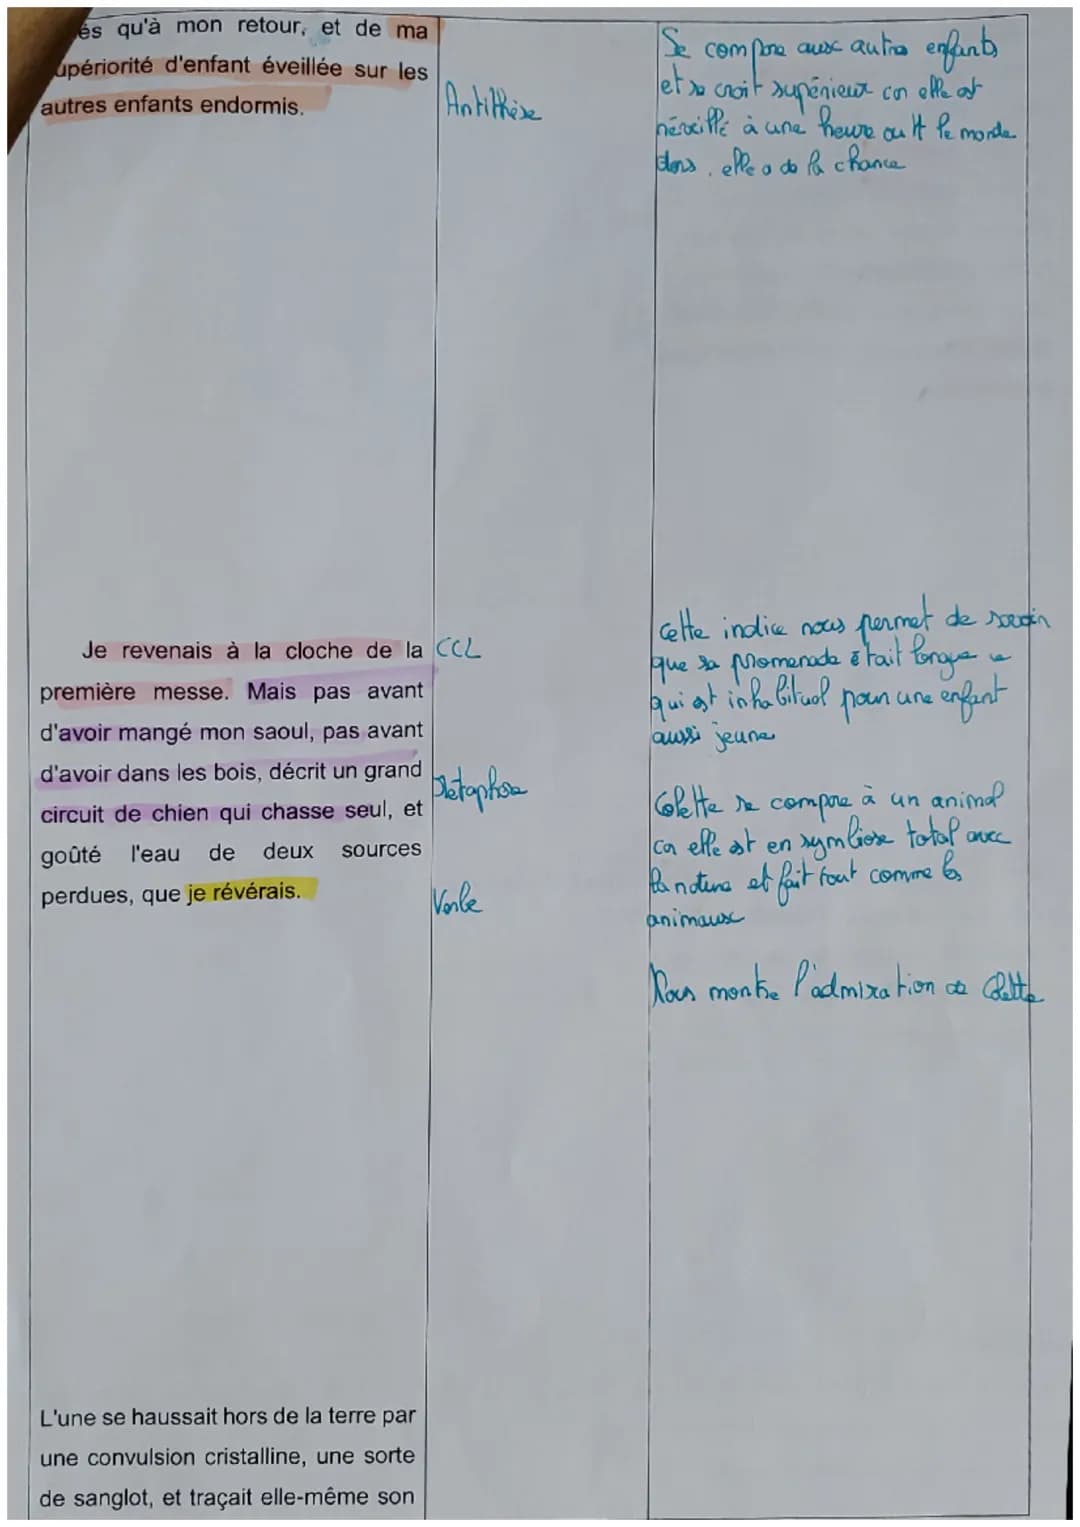 és qu'à mon retour, et de ma
upériorité d'enfant éveillée sur les
autres enfants endormis.
Antithèse
Se compare aux autres enfants
et se croit supérieur car elle est
réveillé à une heure ou tt le monde
dors, elle a de la chance
Je revenais à la cloche de la
première messe. Mais pas avant
d'avoir mangé mon saoul, pas avant
d'avoir dans les bois, décrit un grand
circuit de chien qui chasse seul, et
goûté l'eau de deux sources
perdues, que je révérais.
CCL
Métaphore
Verbe
Cette indice nous permet de savoir
que sa promenade était longue ce
qui est inhabituel pour une enfant
aussi jeune
Colette se compare à un animal
car elle est en symbiose total avec
la nature et fait tout comme les
animaux
Nous montre l'admiration de Colette
L'une se haussait hors de la terre par
une convulsion cristalline, une sorte
de sanglot, et traçait elle-même son